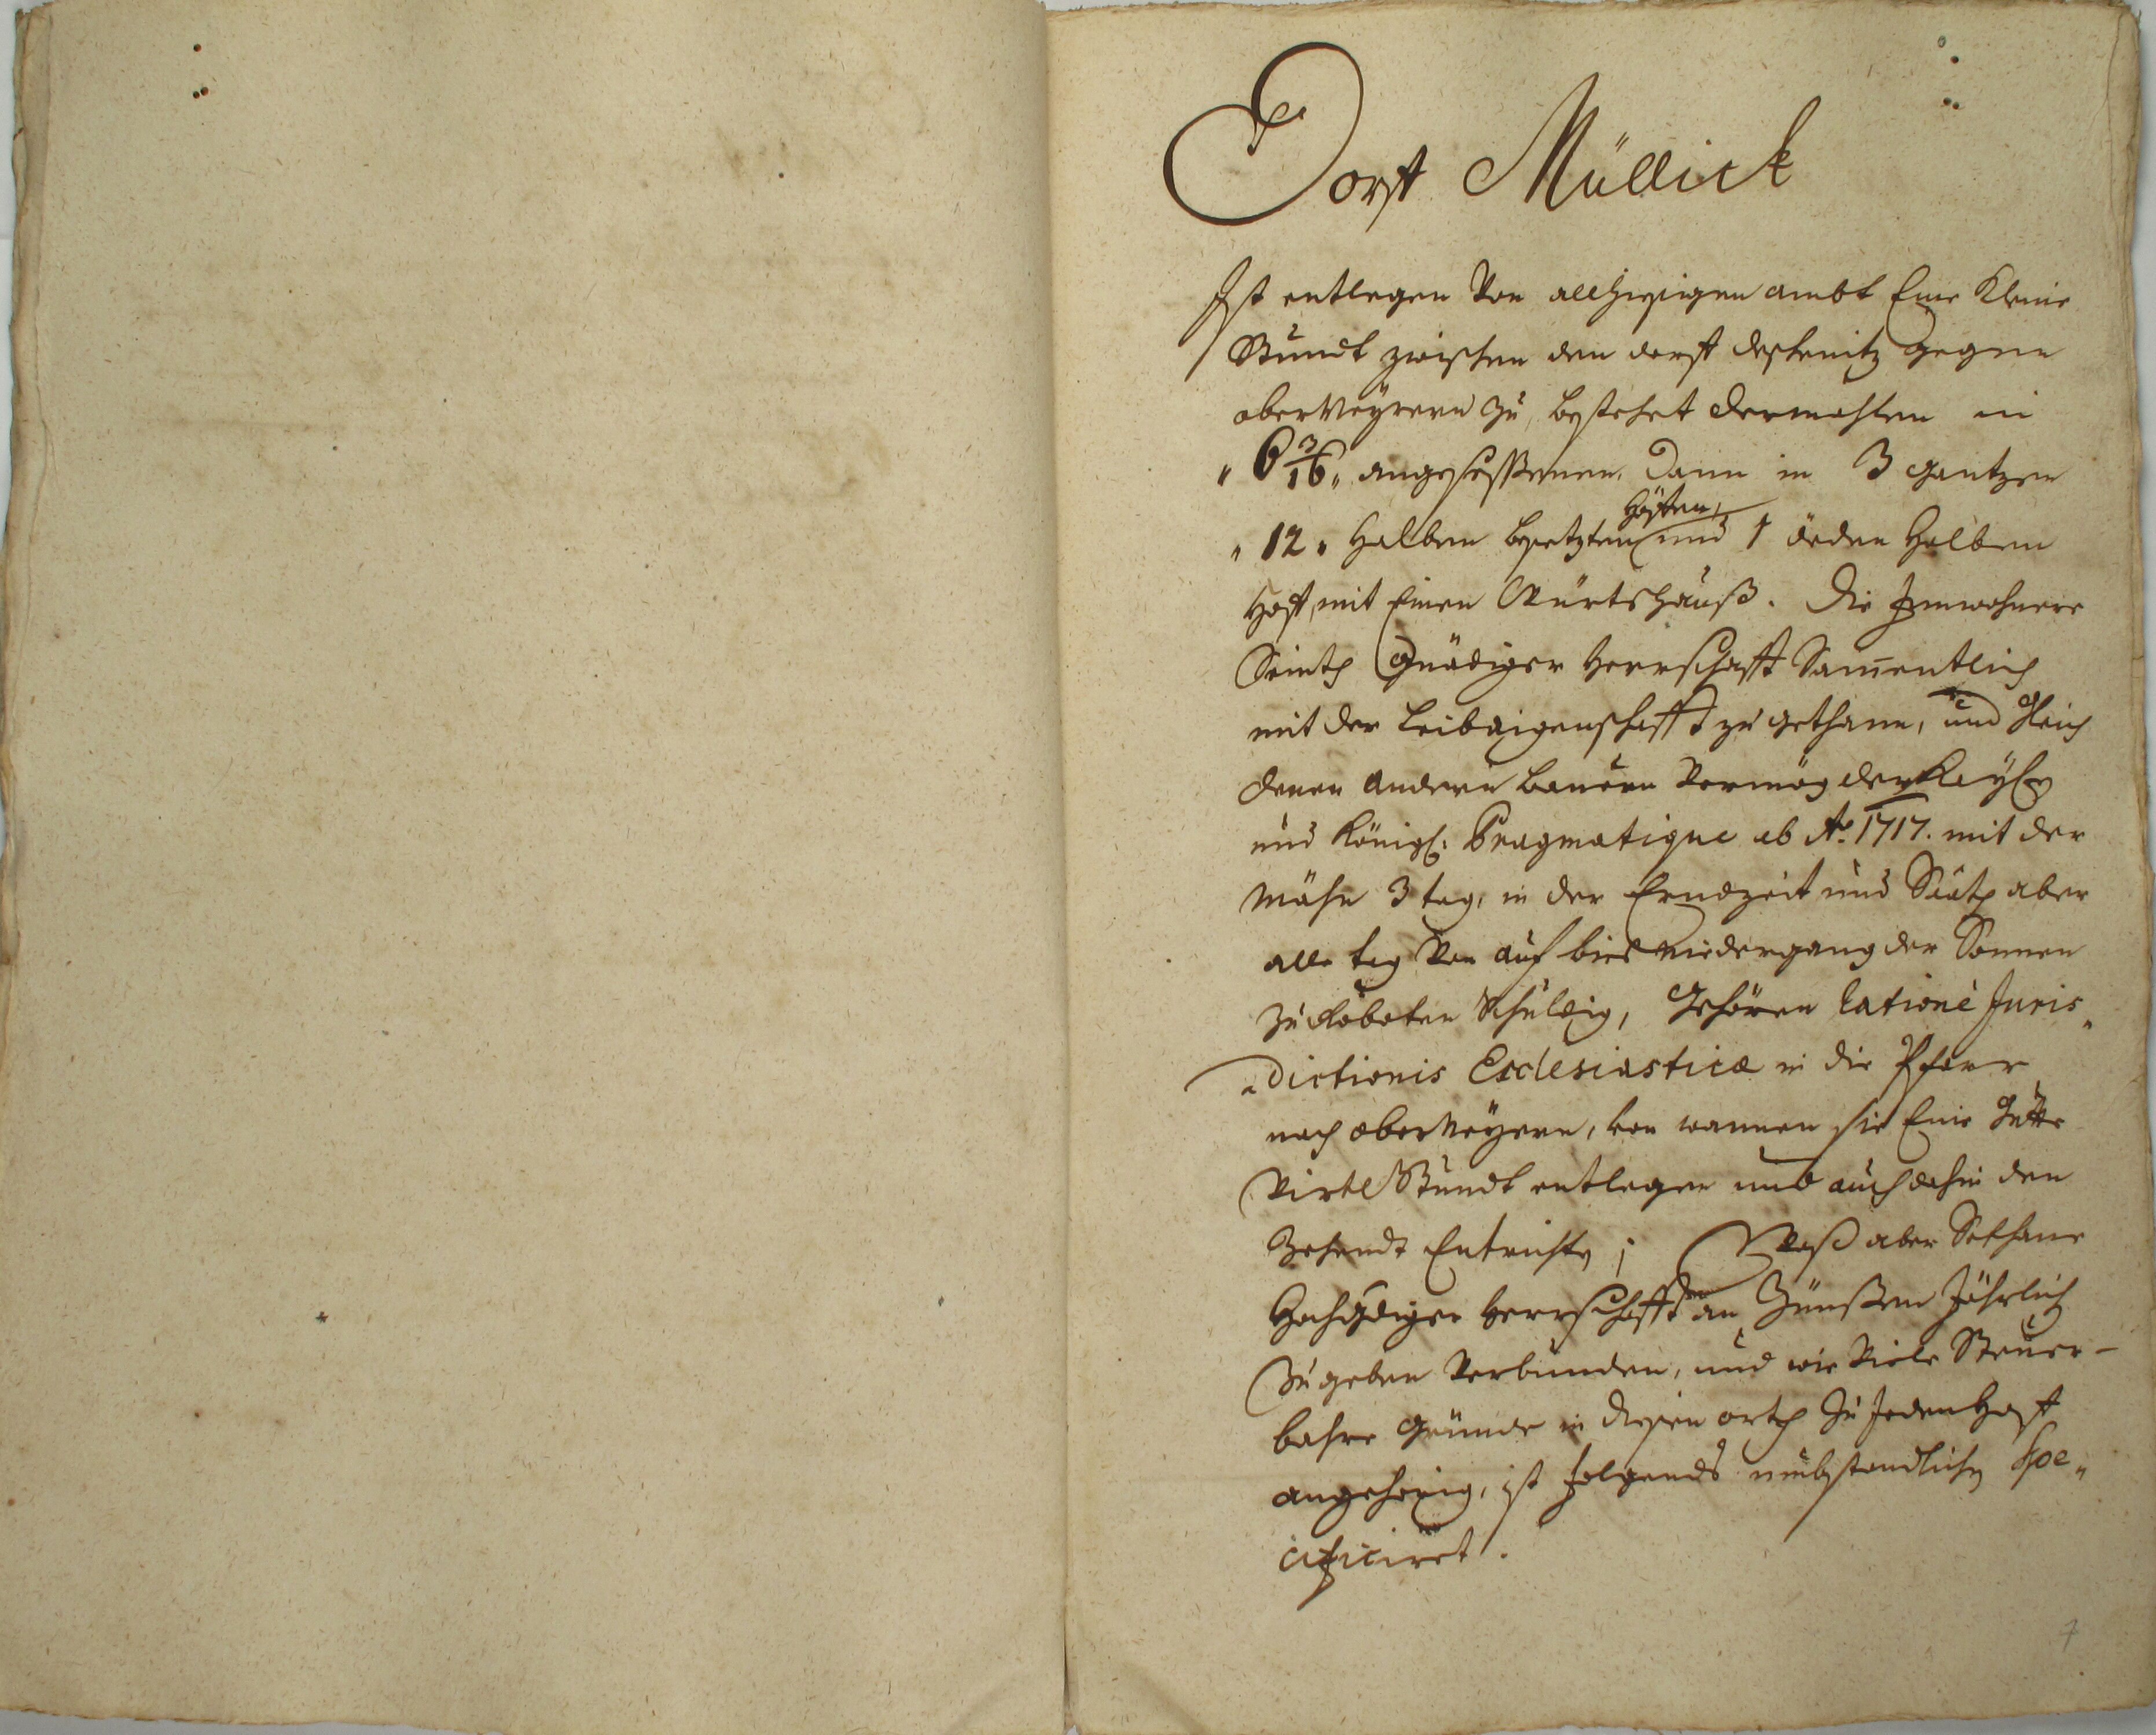 Dorff Müllick
Ist entlegen Von allhiesigen ambt Eine Kleine
Stundt zwischen den dorff deschenitz gegen
oberneÿrern zu, bestehet dermahlen in
" 6 3/16 " angesessenen, dann in 3 gantzen
" 12 " Halben besetzten Höffen, und 1 öeden Halben
Hoff, mit Einen Würtshauß. Die Innwohnere
Seinth Gnädiger Herrschafft Sammentlich
mit der Leibaigenschafft zu gethann, und Gleich
denen Andern bauern Vermög der Kaÿß:
und Königl: Pragmatique ab Ao. 1717. mit der
Mähn 3 tag, in der Erndzeit und Saath aber
alle tag Von auf bies Niedergang der Sonnen
zu Roboten Schuldig, Gehören ratione Juris„
„dictionis Ecclesiasticæ in die Pfarr
nach oberneÿern, von wannen sie Eine Gutte
Virtl Stundt entlegen und auch dahin den
Zehendt Entrichten; Waß aber Sothane
Hochgdiger Herrschafft an Zünßen Jährlich
Zu geben Verbunden, und wie Viele Steuer-
bahre Gründe in diesen orth Zu Jeden Hoff
angehörig, ist folgends umbständlichen Spe„
cificiret.
7